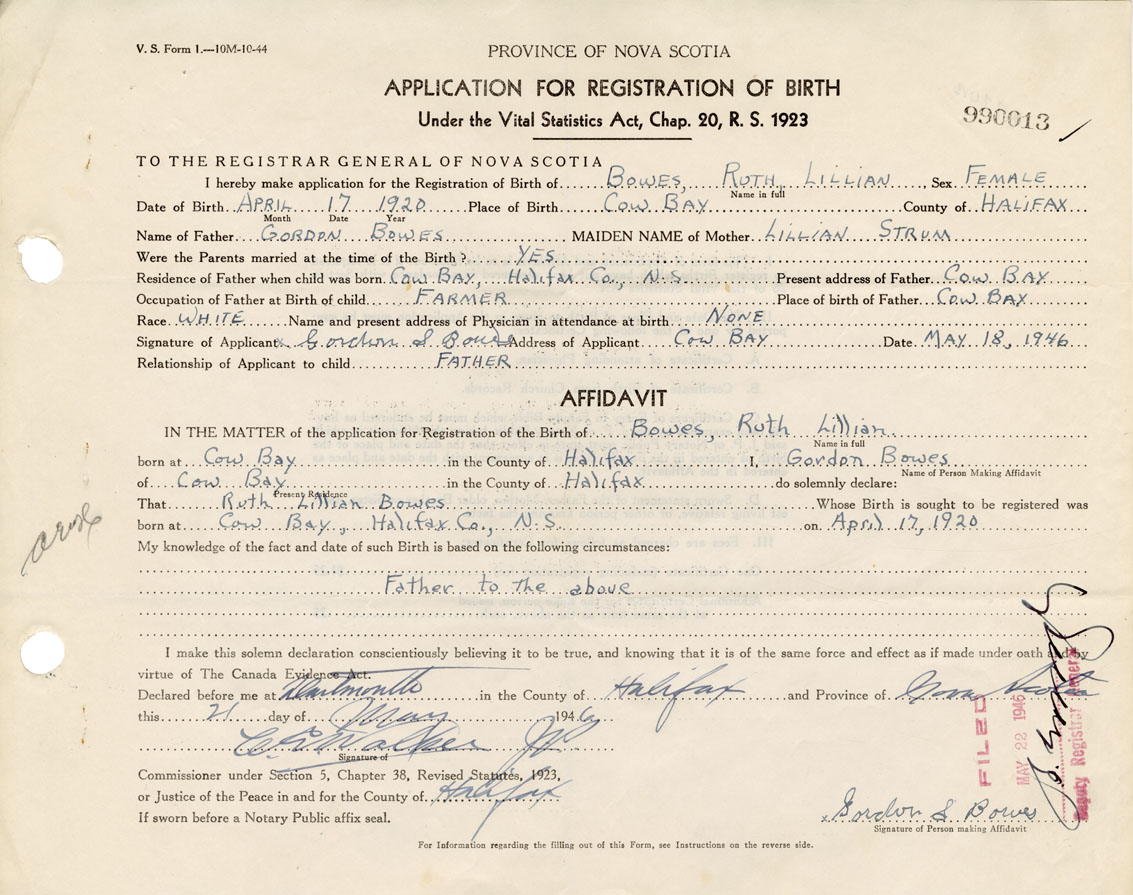 V. S. Form 1.—10M-10-44
PROVINCE OF NOVA SCOTIA
APPLICATION FOR REGISTRATION OF BIRTH
Under the Vital Statistics Act, Chap. 20, R. S. 1923
990013
TO THE REGISTRAR GENERAL OF NOVA SCOTIA
I hereby make application for the Registration of Birth of BOWES, RUTH LILLIAN, Sex FEMALE
Name in full
Date of Birth APRIL 17 1920 Place of Birth COW BAY County of HALIFAX
Month Date Year
Name of Father GORDON BOWES MAIDEN NAME of Mother LILLIAN STRUM
Were the Parents married at the time of the Birth? YES
Residence of Father when child was born COW BAY, HALIFAX CO., N.S. Present address of Father COW BAY
Occupation of Father at Birth of child FARMER Place of birth of Father COW BAY
Race WHITE Name and present address of Physician in attendance at birth NONE
Signature of Applicant x Gordon S Bowes Address of Applicant COW BAY Date MAY 18, 1946
Relationship of Applicant to child FATHER
AFFIDAVIT
IN THE MATTER of the application for Registration of the Birth of Bowes, Ruth Lillian
Name in full
born at Cow Bay in the County of Halifax I, Gordon Bowes
Name of Person Making Affidavit
of Cow Bay in the County of Halifax do solemnly declare:
Present Residence
That Ruth Lillian Bowes Whose Birth is sought to be registered was
born at Cow Bay, Halifax Co., N.S. on April 17, 1920
My knowledge of the fact and date of such Birth is based on the following circumstances:
Father to the above
I make this solemn declaration conscientiously believing it to be true, and knowing that it is of the same force and effect as if made under oath and by
virtue of The Canada Evidence Act.
Declared before me at Dartmouth in the County of Halifax and Province of Nova Scotia
this 21 day of May 1946
Walker JP
Signature of
Commissioner under Section 5, Chapter 38, Revised Statutes, 1923,
or Justice of the Peace in and for the County of Halifax
If sworn before a Notary Public affix seal.
FILED
MAY 22 1946
Deputy Registrar General
x Gordon S Bowes
Signature of Person making Affidavit
For Information regarding the filling out of this Form, see Instructions on the reverse side.